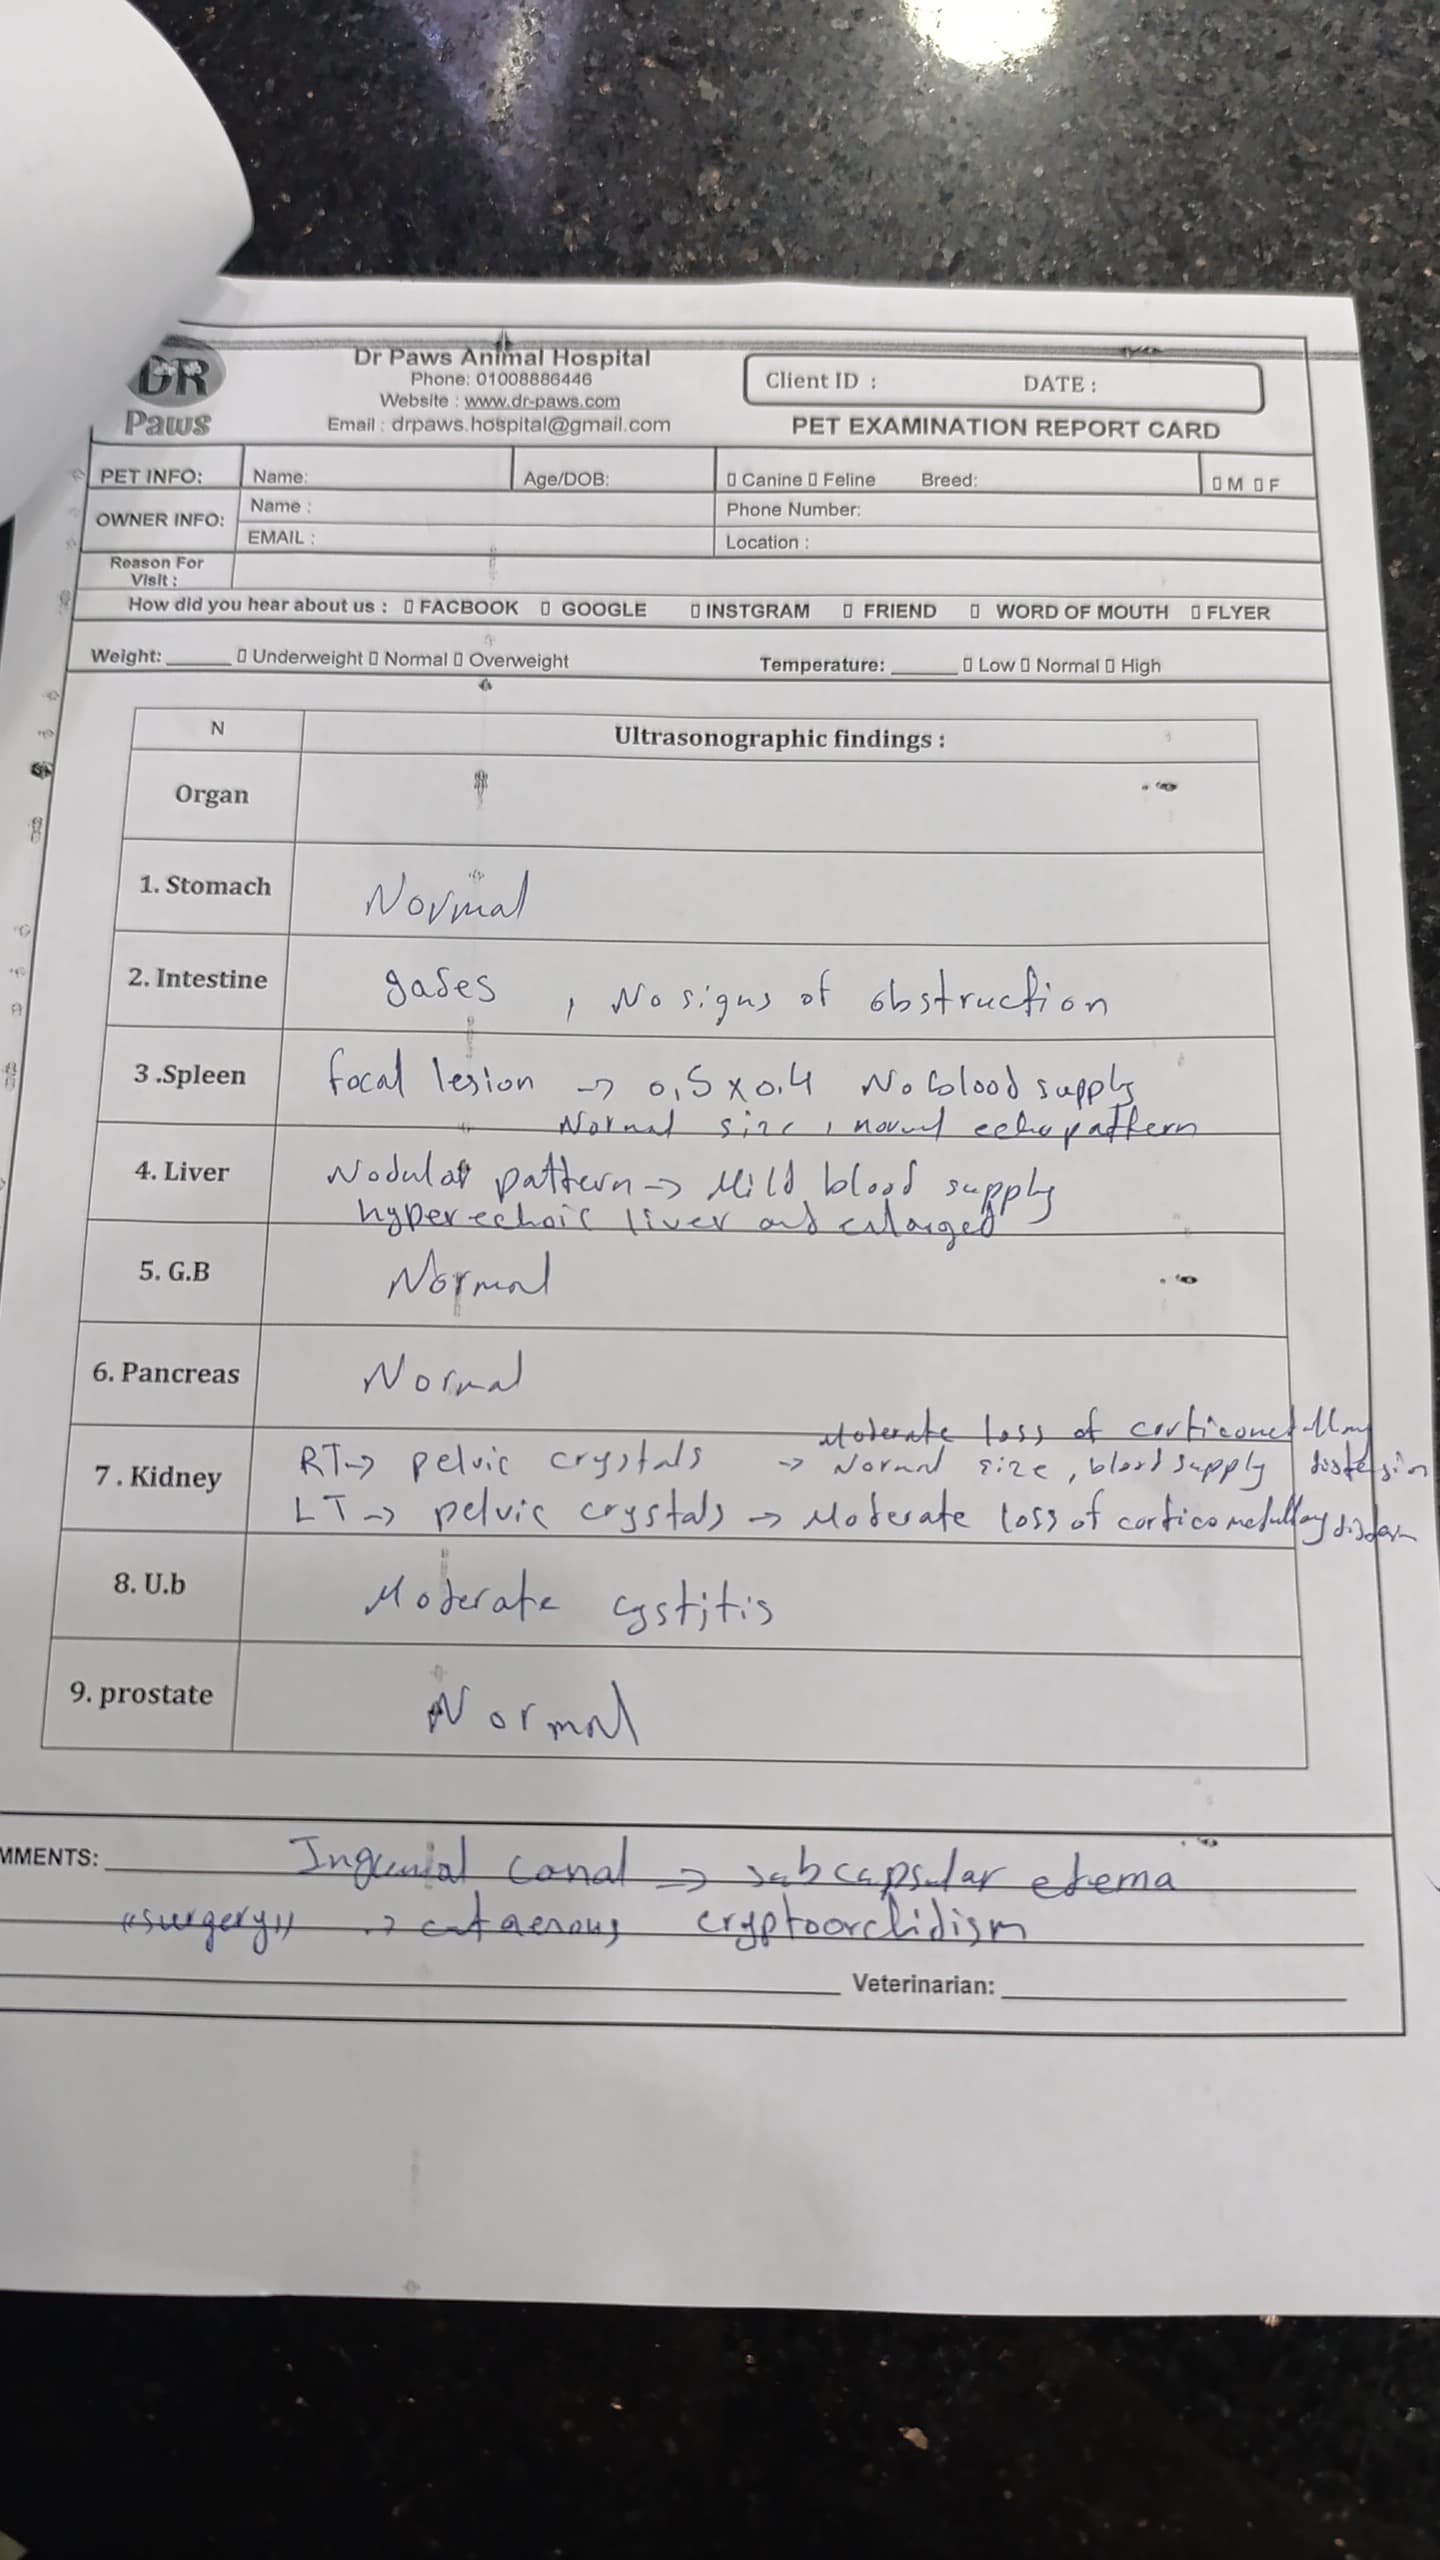 DR
Paws
Dr Paws Animal Hospital
Phone: 01008886446
Website : www.dr-paws.com
Email : drpaws.hospital@gmail.com
Client ID : DATE :
PET EXAMINATION REPORT CARD
PET INFO: Name: Age/DOB: Canine Feline Breed: M F
OWNER INFO: Name : Phone Number:
EMAIL : Location :
Reason For
Visit :
How did you hear about us : FACBOOK GOOGLE INSTGRAM FRIEND WORD OF MOUTH FLYER
Weight: Underweight Normal Overweight Temperature: Low Normal High
N Ultrasonographic findings :
Organ
1. Stomach Normal
2. Intestine gases , No signs of obstruction
3 .Spleen focal lesion → 0,5 x 0.4 No blood supply
Normal size , normal echo pattern
4. Liver Nodular pattern → Mild blood supply
hyperechoic liver and enlarged
5. G.B Normal
6. Pancreas Normal
Moderate loss of
7 . Kidney RT → pelvic crystals → Normal size , blood supply
LT → pelvic crystals → Moderate loss of corticomedullary
8. U.b Moderate cystitis
9. prostate Normal
MMENTS: canal → subcapsular edema
"surgery" →
Veterinarian: